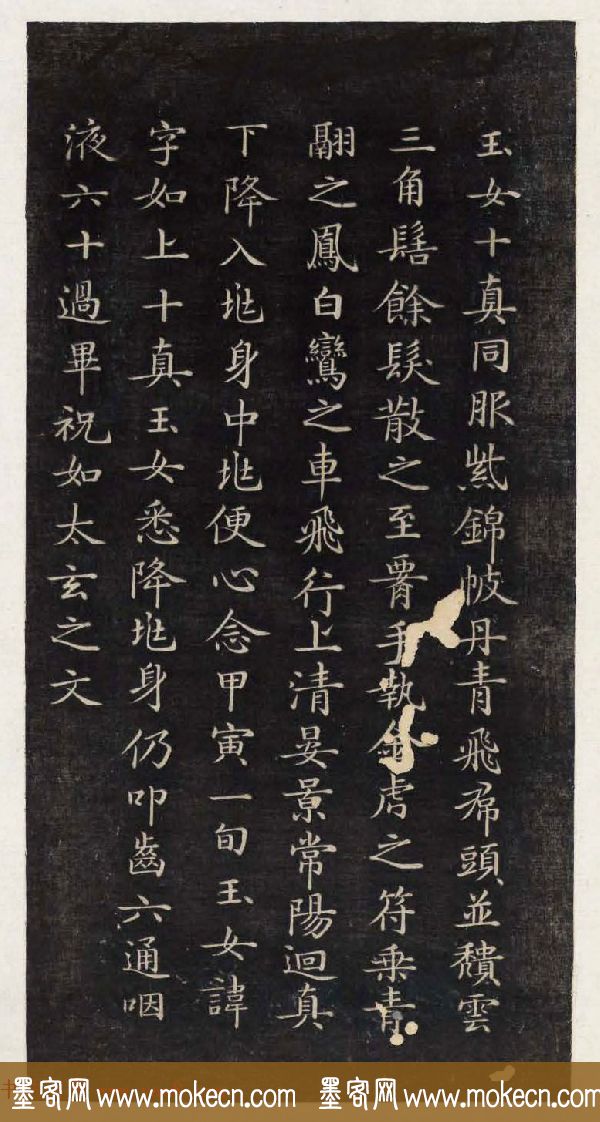 玉女十真同服紫錦帔丹青飛帬頭並穨雲
三角髻餘髮散之至䏶手執金虎之符乘青
翮之鳳白鸞之車飛行上清晏景常陽迴真
下降入兆身中兆便心念甲寅一旬玉女諱
字如上十真玉女悉降兆身仍叩齒六通咽
液六十過畢祝如太玄之文
墨客网 www.mokecn.com 墨客网 www.mokecn.com